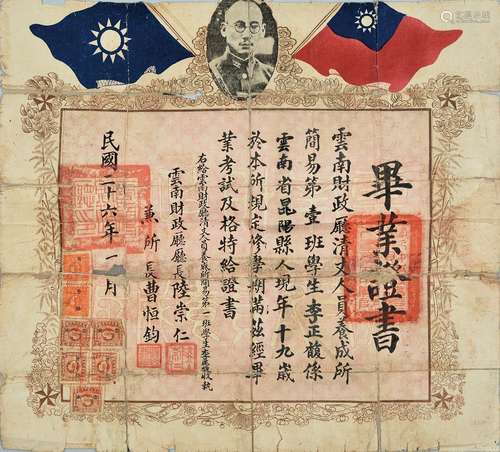 畢業證書
雲南財政廳清丈人員養成所
簡易第壹班學生李正馥係
雲南省昆陽縣人現年十九歲
於本所規定修學期滿茲經畢
業考試及格特給證書
右給雲南財政廳清丈人員養成所簡易第一班學生李正馥收執
雲南財政廳廳長陸崇仁
兼所長曹恒鈞
民國二十六年一月